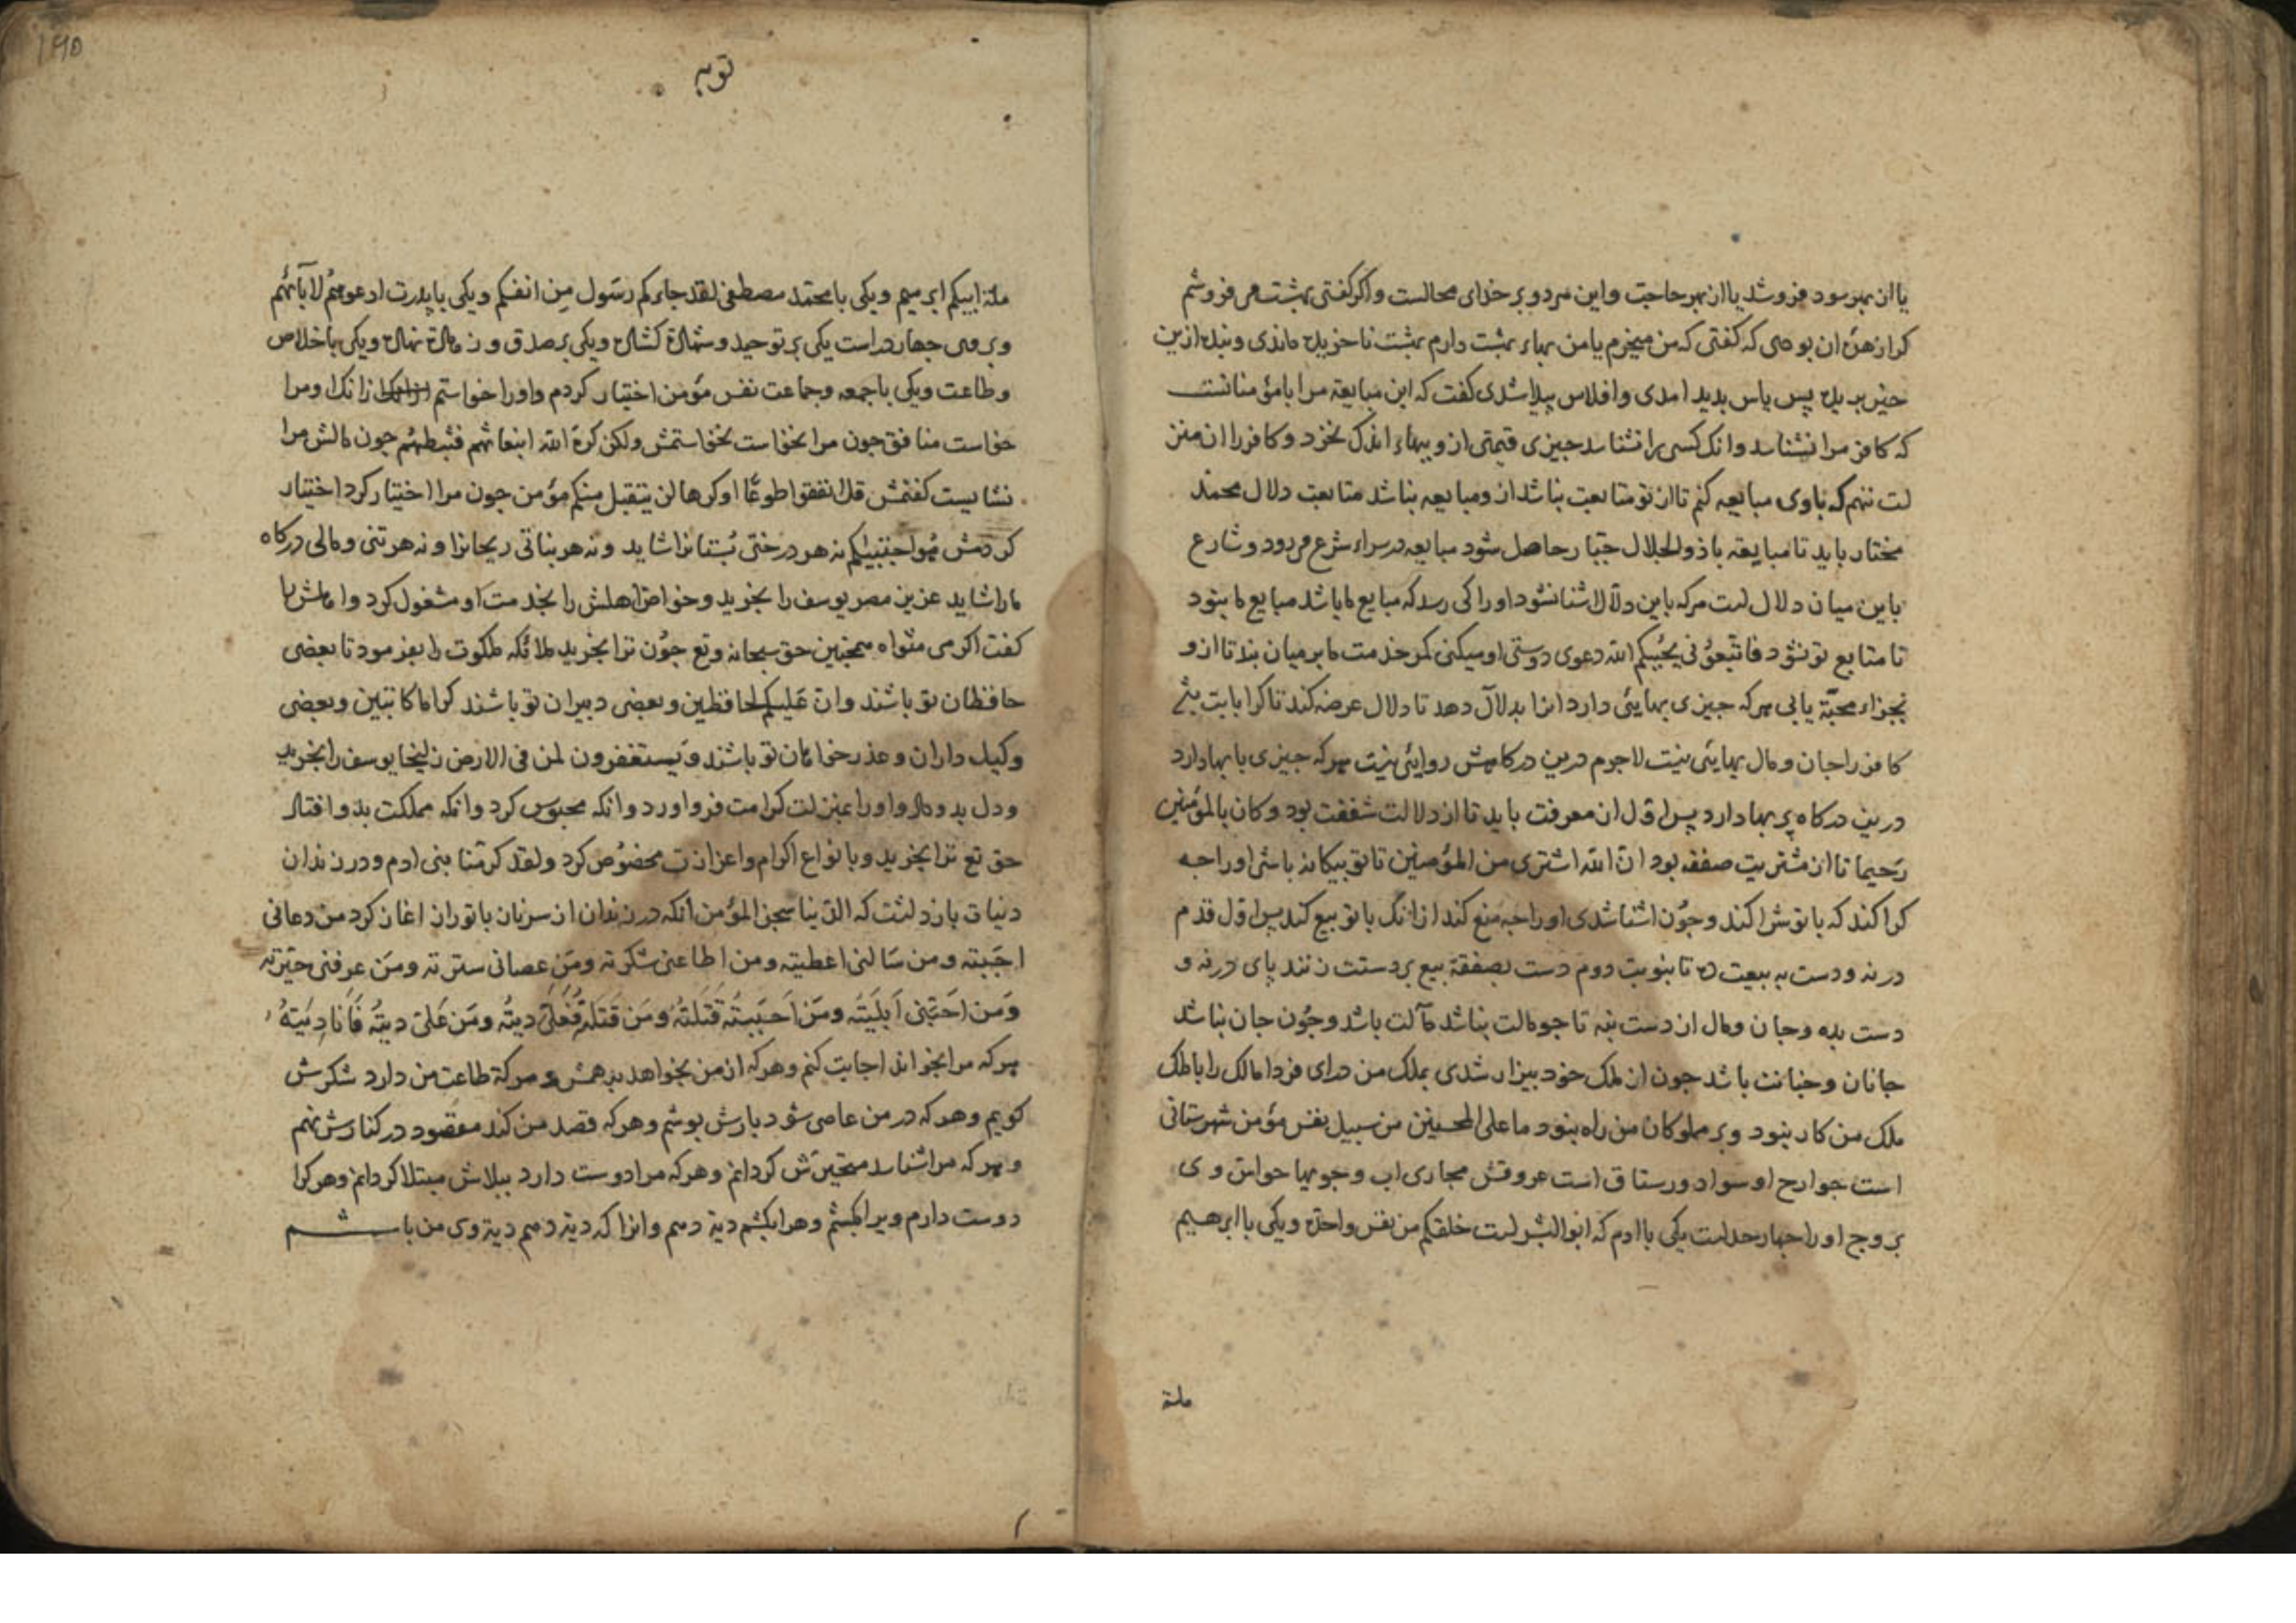 یا از بهر سود فروشد یا از بهر حاجت و این هر دو بر خدای محالست و اکر کفتی بهشت می فروشم
کرا زهره ان بودی که کفتی که من میخرم یا من بهاء بهشت دارم بهشت ناخریده ماندی و بنده ازین
حیز بریده پس یاس بدید امدی و افلاس پیدا شدی کفت که این مبایعه مرا با مؤمنانست
که کافر مرا نشناسد وانک کسی را نشناسد جیزی قیمتی ازو ببهاء اندک نخرد و کافر را ان
لت ننهم که باوی مبایعه کنم تا از تو متابعت نباشد ازو مبایعه نباشد متابعت دلال محمد
مختار باید تا مبایعه با ذوالجلال جبار حاصل شود مبایعه در سراء شرع می رود و شارع
باین میان دلال لست هرکه باین دلال اشنا نشود او را کی رسد که مبایع ما باشد مبایع ما نبود
تا متابع تو نشود فاتبعوني يحببكم الله دعوی دوستی او میکنی کمر خدمت ما بر میان بند تا ازو
بجزاء محبة یابی هرکه جیزی بهایئ دارد انرا بدلال دهد تا دلال عرضه کند تا کرا بابت
کافر را جان و مال بهایئ نیست لاجرم درین درکاهش روایئ نیست هرکه جیزی با بها دارد
درین درکاه پر بها دارد پس اول ان معرفت باید تا از دلالت شفقت بود وكان بالمؤمنين
رحيما تا از مشتریت صفقه بود ان الله اشترى من المؤمنين تا تو بیکانه باشی او را جه
کرا کند که با تو شرا کند و جون اشنا شدی او را جه منع کند از انک با تو بیع کند پس اول قدم
در نه و دست به بیعت ده تا بنوبت دوم دست بصفقهٔ بیع بر دستت زنند پای در نه و
دست بده و جان و مال از دست بنه تا جو مالت نباشد مآلت باشد و جون جان نباشد
جانان و جنانت باشد جون از ملک خود بیزار شدی بملک من درای فردا مالک را با ملک
ملک من کار نبود و بر مملوکان من راه نبود ما على المحسنين من سبيل نفس مؤمن شهرستانی
است جوارح او سواد و رستاق است عروقش مجاری اب و جویها حواس وی
بروج او را جهار حدلست یکی با ادم که ابو البشر لست خلقكم من نفس واحدة و یکی با ابرهیم
ملة
توبه
ملة ابيكم ابرهيم و یکی با محمد مصطفی لقد جاءكم رسول من انفسكم و یکی با پدرت ادعوهم لابائهم
وبر وی جهار در است یکی بر توحید و شهادة کشاده و یکی بر صدق و زهادة نهاده و یکی با خلاص
و طاعت و یکی با جمعه و جماعت نفس مؤمن اختیار کردم و او را خواستم زانک او مرا
خواست منافق جون مرا نخواست نخواستمش ولكن كره الله انبعاثهم فثبطهم جون مالش مرا
نشایست کفتمش قل انفقوا طوعًا او كرها لن يتقبل منكم مؤمن جون مرا اختیار کرد اختیار
کردمش هو اجتبيكم نه هر درختی بستانرا شاید و نه هر نباتی ریحانرا و نه هر تنی و مالی درکاه
مارا شاید عزیز مصر یوسف را بخرید و خواص اهلش را بخدمت او مشغول کرد و اهلش را
کفت اكرمى مثواه همجنین حق سبحانه و تع جون ترا بخرید ملائکه ملکوت را بفرمود تا بعضی
حافظان تو باشند وان عليكم لحافظين و بعضی دبیران تو باشند كراما كاتبين و بعضی
وکیل داران و عذر خواهان تو باشند ويستغفرون لمن في الارض زلیخا یوسف را بخرید
و دل بدو داد و او را بمنزلت کرامت فرو اورد وانکه محبوس کرد وانکه مملکت بدو افتاد
حق تع ترا بخرید و بانواع اکرام و اعزازت مخصوص کرد ولقد كرمنا بنى ادم و در زندان
دنیات بازدلشت که الدنيا سجن المؤمن انکه در زندان از سر زبان با تو راز اغاز کرد من دعانی
اجبته ومن سالنى اعطيته ومن اطاعنى شكرته ومن عصانى سترته ومن عرفنى حيرته
ومن احبنى ابليته ومن احببته قتلته ومن قتلته فعلى ديته ومن على ديته فانا ديته
هرکه مرا بخواند اجابت کنم و هرکه از من بخواهد بدهمش و هرکه طاعت من دارد شکرش
کویم و هرکه در من عاصی شود بازش بوشم و هرکه قصد من کند مقصود در کنارش نهم
و هرکه مرا شناسد متحیرش کردانم و هرکه مرا دوست دارد ببلاش مبتلا کردانم و هرکرا
دوست دارم ویرا بکشم و هرا بکشم دیة دهم وانرا که دیة دهم دیة وی من باشم